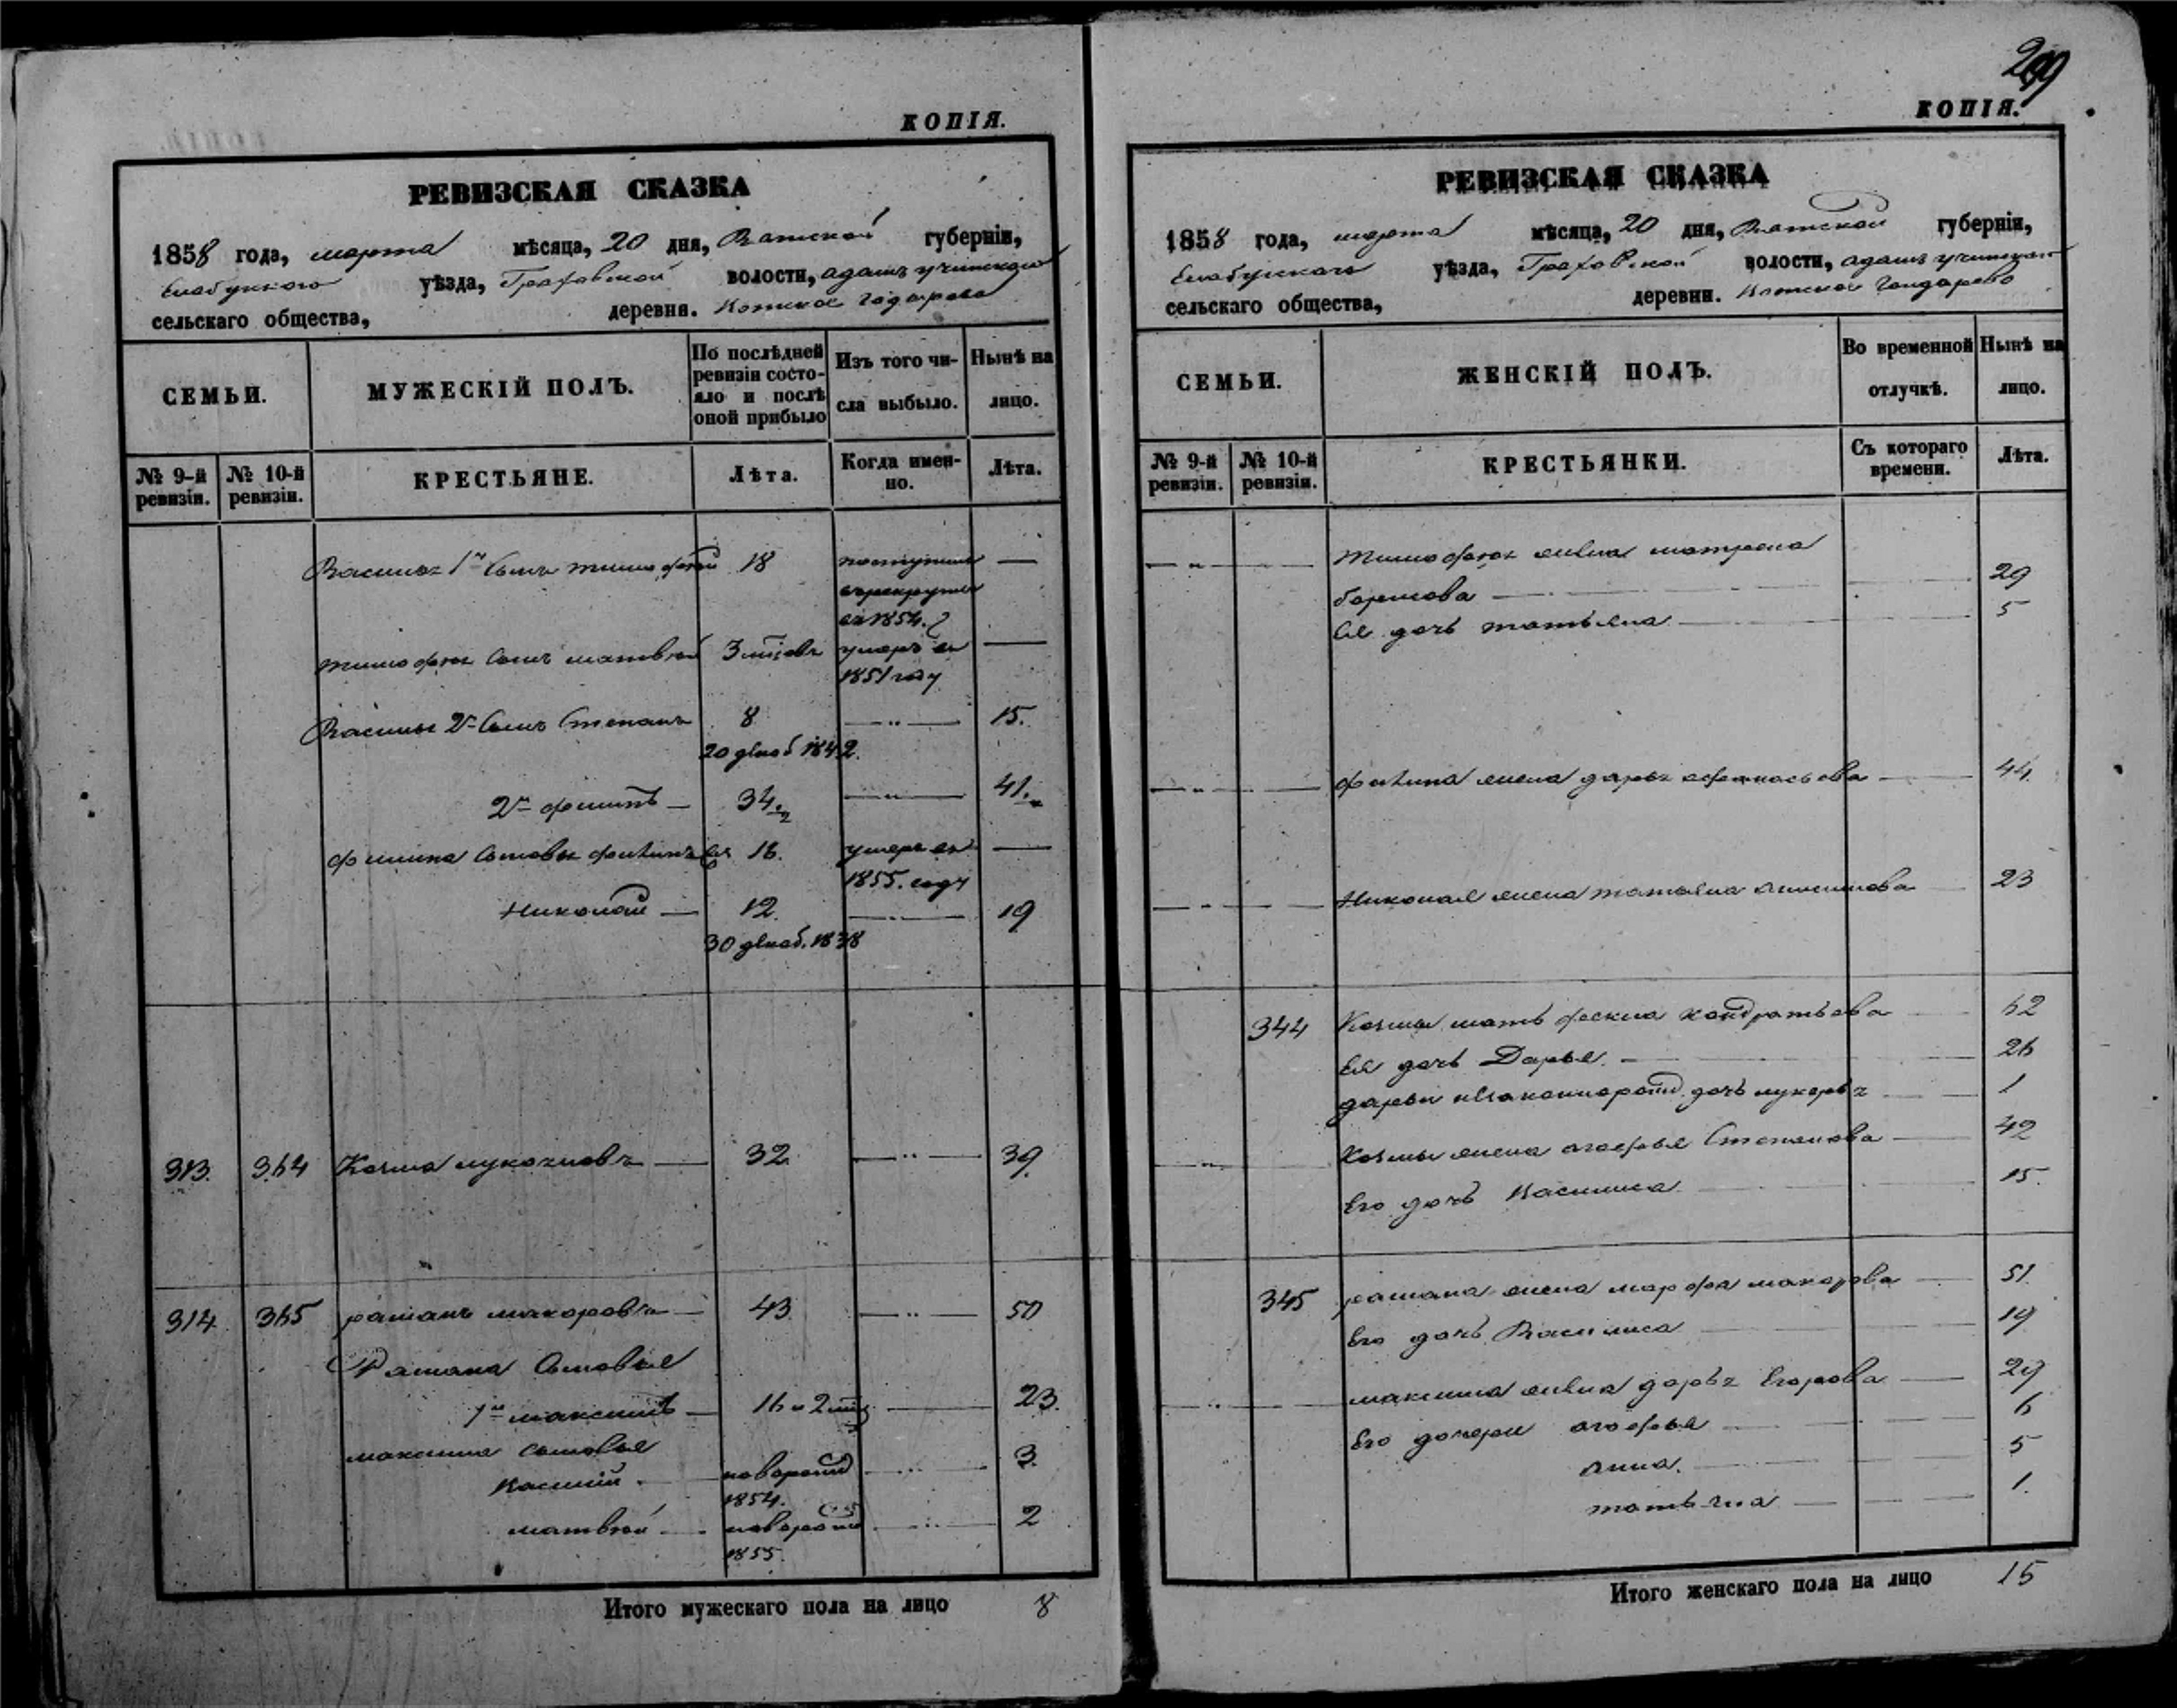 КОПІЯ.
РЕВИЗСКАЯ СКАЗКА
1858 года, марта мѣсяца, 20 дня, Вятской губерніи,
Елабускаго уѣзда, Граховской волости,
сельскаго общества, деревни.
СЕМЬИ.
МУЖЕСКІЙ ПОЛЪ.
По послѣдней ревизіи состо-
яло и послѣ оной прибыло
Изъ того чи-
сла выбыло.
Нынѣ на
лицо.
№ 9-й ревизіи.
№ 10-й ревизіи.
КРЕСТЬЯНЕ.
Лѣта.
Когда имен-
но.
Лѣта.
Василья 1й Сынъ тимофей 18 поступилъ —
врекруты
въ 1854.
тимофея Сынъ матвей 3 умеръ въ —
1851 году
Василья 2й Сынъ Степанъ 8 — " — 15.
20 декаб 1842.
2й филипъ — 34 — " — 41.
филипа Сыновья 16. умеръ въ —
1855. году
Николай — 12. — " — 19
30 декаб. 1838
313. 364 Козма — 32 — " — 39.
314 365 романъ макаровъ — 43 — " — 50
Романа Сыновья
1й максимъ — 16 23.
максима сыновья
новорожд 3.
1854.
матвей — новорожд 2
1855.
Итого мужескаго пола на лицо 8
299
КОПІЯ.
РЕВИЗСКАЯ СКАЗКА
1858 года, марта мѣсяца, 20 дня, Вятской губерніи,
Елабускаго уѣзда, Граховской волости,
сельскаго общества, деревни.
СЕМЬИ.
ЖЕНСКІЙ ПОЛЪ.
Во временной
отлучкѣ.
Нынѣ на
лицо.
№ 9-й ревизіи.
№ 10-й ревизіи.
КРЕСТЬЯНКИ.
Съ котораго
времени.
Лѣта.
— " — тимофея жена матрена
борисова — 29
Ея дочь татьяна — 5
— " — жена дарья афанасьева — 44.
— " — Николая жена татьяна — 23
344 Козмы мать фекла кондратьева 62
Ея дочь Дарья. — 26
дарьи незаконнорожд дочь лукерья 1
— " — Козмы жена агафья Степанова — 42
Его дочь Василиса 15.
345 романа жена марфа макарова — 51.
Его дочь Василиса — 19
— " — максима жена дарья Егорова — 29
Его дочери агафья — 6
анна. — 5
татьяна — 1.
Итого женскаго пола на лицо 15